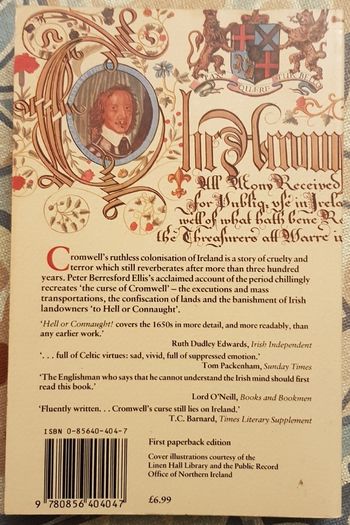 All Mony Received
for Publiq use in Irela
well of what hath bene Re
the Threasurers att Warre
Cromwell's ruthless colonisation of Ireland is a story of cruelty and
terror which still reverberates after more than three hundred
years. Peter Berresford Ellis's acclaimed account of the period chillingly
recreates 'the curse of Cromwell' – the executions and mass
transportations, the confiscation of lands and the banishment of Irish
landowners 'to Hell or Connaught'.
'Hell or Connaught! covers the 1650s in more detail, and more readably, than
any earlier work.'
Ruth Dudley Edwards, Irish Independent
'. . . full of Celtic virtues: sad, vivid, full of suppressed emotion.'
Tom Packenham, Sunday Times
'The Englishman who says that he cannot understand the Irish mind should first
read this book.'
Lord O'Neill, Books and Bookmen
'Fluently written. . . Cromwell's curse still lies on Ireland.'
T.C. Barnard, Times Literary Supplement
ISBN 0-85640-404-7
First paperback edition
Cover illustrations courtesy of the
Linen Hall Library and the Public Record
Office of Northern Ireland
9 780856 404047
£6.99